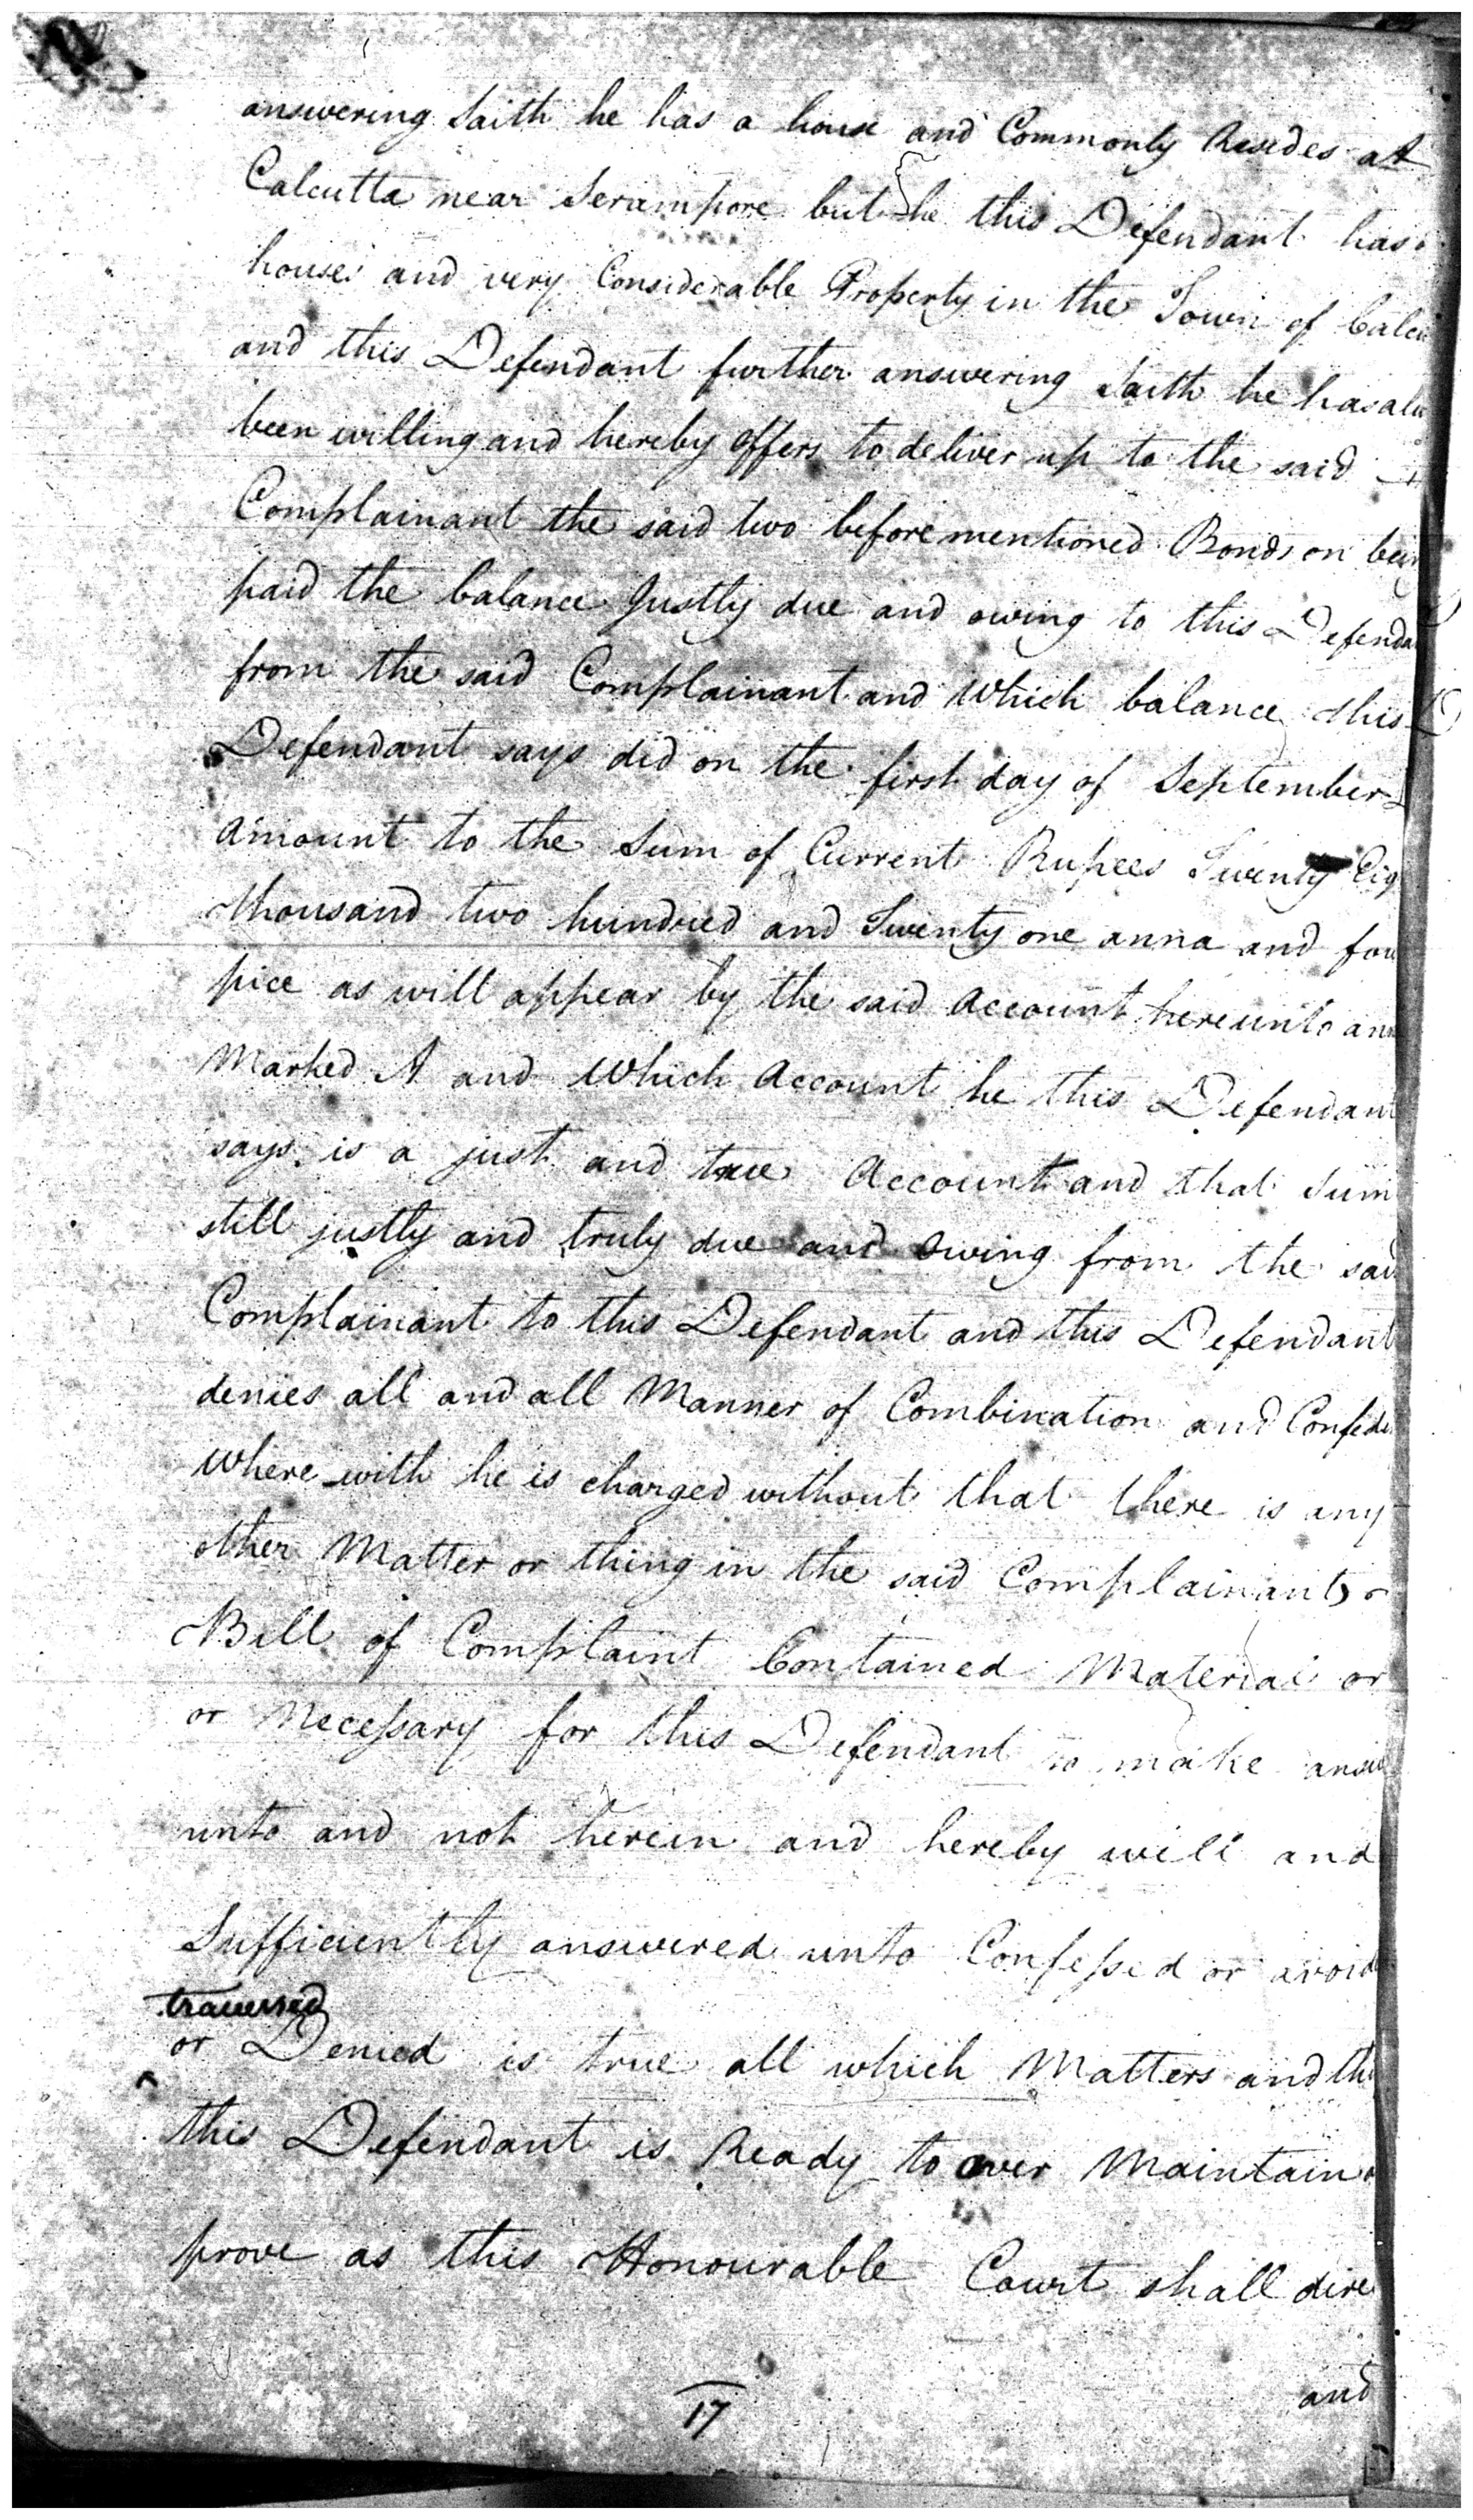 answering saith he has a house and Commonly Resides at
Calcutta near Serampore but he this Defendant has
houses and very Considerable Property in the Town of Calcu
and this Defendant further answering saith he has alw
been willing and hereby offers to deliver up to the said
Complainant the said two beforementioned Bonds on bein
paid the balance Justly due and owing to this Defenda
from the said Complainant and Which balance this
Defendant says did on the first day of September
amount to the Sum of Current Rupees Twenty Eig
thousand two hundred and Twenty one anna and fou
pice as will appear by the said Account hereunto ann
Marked A and Which Account he this Defendant
says is a just and true Account and that Sum
still justly and truly due and owing from the said
Complainant to this Defendant and this Defendant
denies all and all Manner of Combination and Confede
Where with he is charged without that there is any
other Matter or thing in the said Complainants
Bill of Complaint Contained Material or
or Necessary for this Defendant to make answ
unto and not herein and hereby well and
Sufficiently answered unto Confessed or avoid
traversed
or Denied is true all which Matters and thi
this Defendant is Ready to aver Maintain
prove as this Honourable Court shall dire
and
17